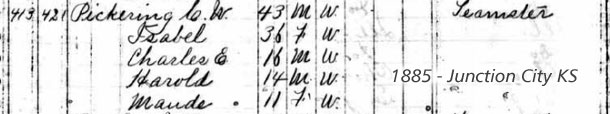 413 421 Pickering C. W. 43 M W. Teamster
Isabel 36 F W.
Charles E 16 M W.
Harold 14 M W. 1885 - Junction City KS
Maude 11 F W.